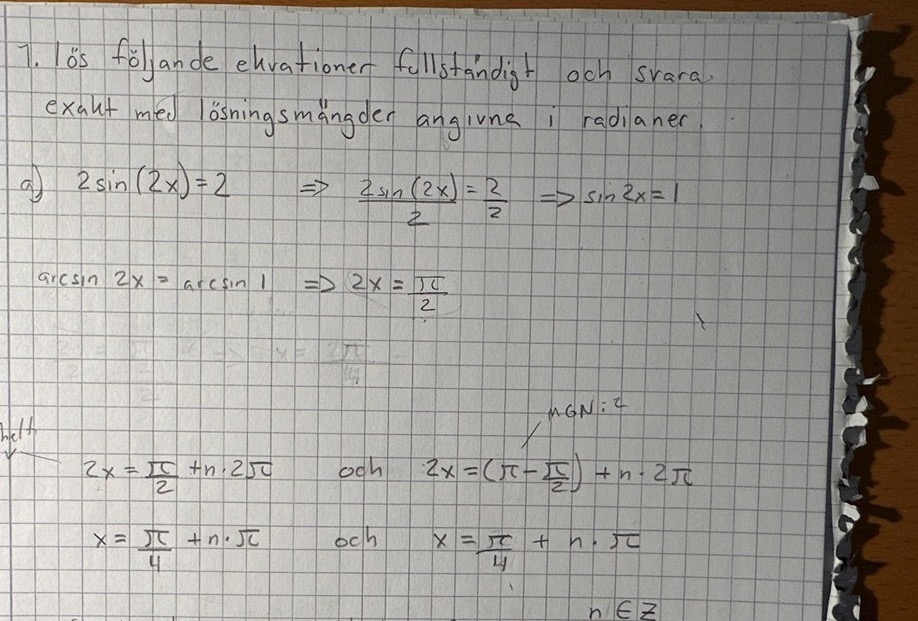 7. lös följande ekvationer fullständigt och svara
exakt med lösningsmängder angivna i radianer.
a) 2sin(2x)=2 => 2sin(2x)/2 = 2/2 => sin2x=1
arcsin 2x = arcsin 1 => 2x = π/2
MGN:2
2x = π/2 + n·2π och 2x = (π - π/2) + n·2π
x = π/4 + n·π och x = π/4 + n·π
n ∈ Z